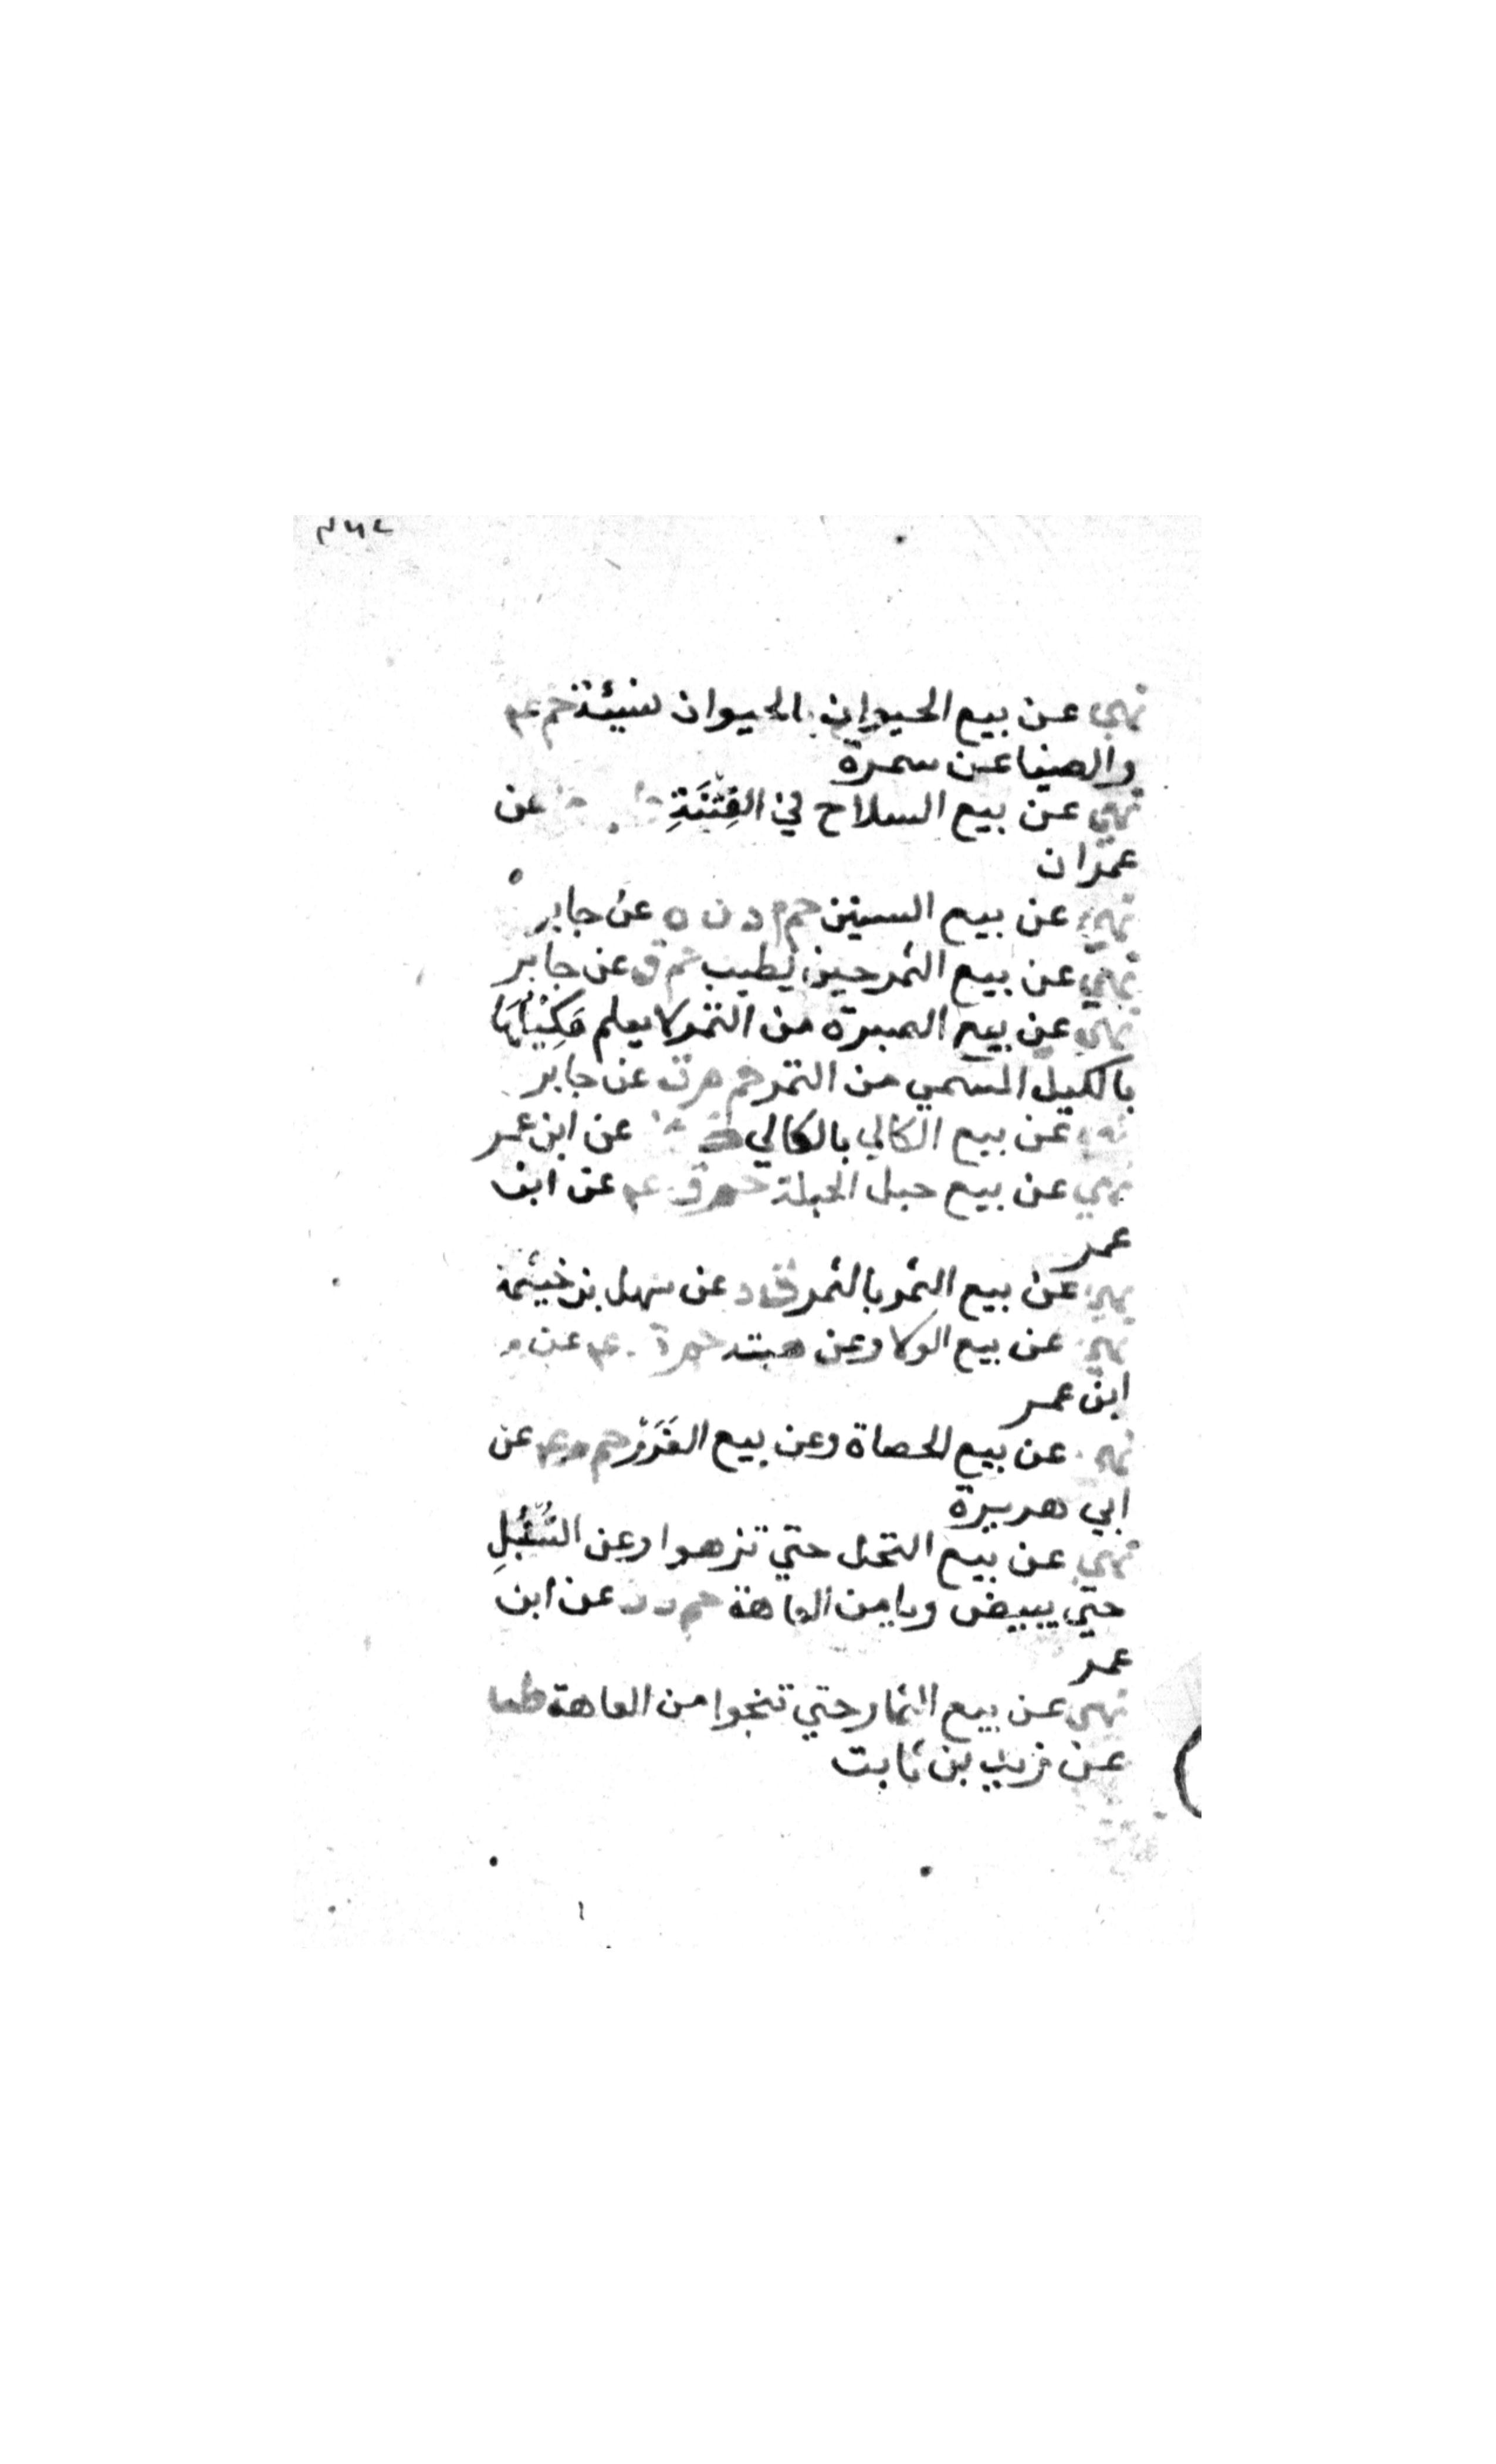 نهي عن بيع الحيوان بالحيوان نسيئة حم عه
والضيا عن سمرة
نهي عن بيع السلاح في الفِتْنَةِ عن
عمران
نهي عن بيع السنين حم م د ن ه عن جابر
نهي عن بيع الثمر حين يطيب حم ق عن جابر
نهي عن بيع الصبرة من التمر لا يعلم مَكِيْلُهَا
بالكيل المسمي من التمر حم م ن عن جابر
نهي عن بيع الكالي بالكالي عن ابن عمر
نهي عن بيع حبل الحبلة حم ق عه عن ابن
عمر
نهي عن بيع الثمر بالتمر ق د عن سهل بن خيثمة
نهي عن بيع الولا وعن هبته حم ق عه عن
ابن عمر
نهي عن بيع الحصاة وعن بيع الغَرَرْ حم م عه عن
ابي هريرة
نهي عن بيع النخل حتي تزهوا وعن السُّنْبُلِ
حتي يبيض ويامن العاهة حم د ت عن ابن
عمر
نهي عن بيع الثمار حتي تنجوا من العاهة طب
عن زيد بن ثابت